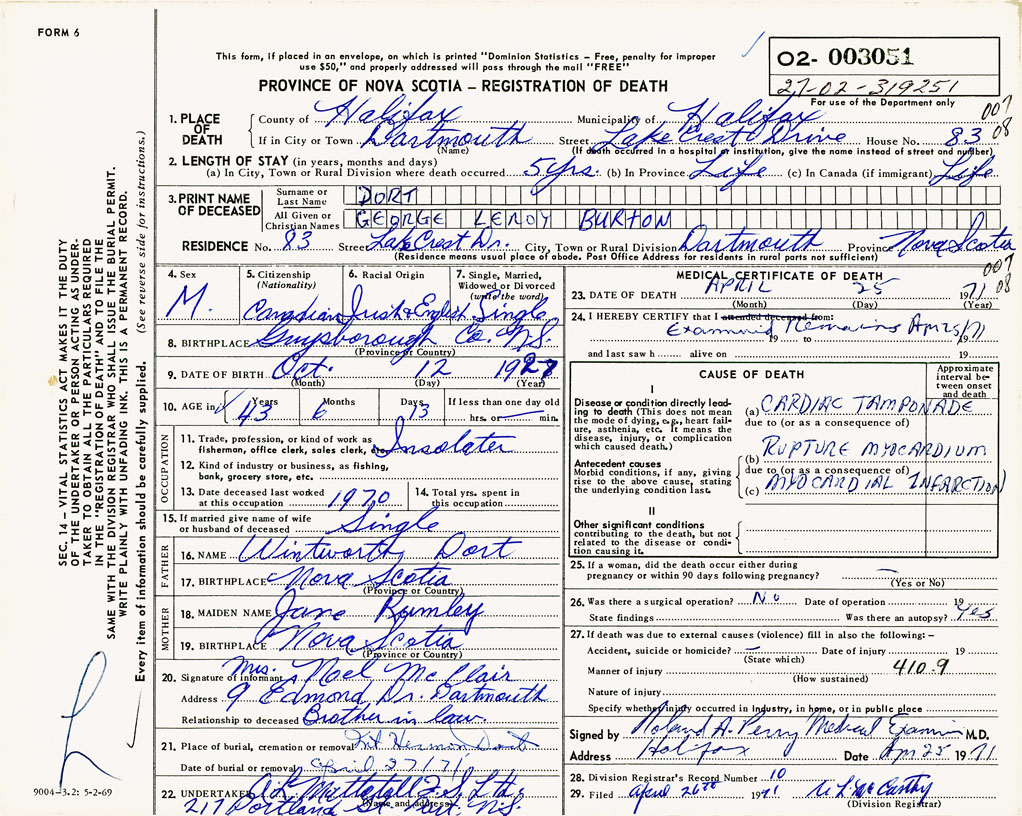 FORM 6
This form, if placed in an envelope, on which is printed "Dominion Statistics – Free, penalty for improper
use $50," and properly addressed will pass through the mail "FREE"
02- 003051
27-02-319251
For use of the Department only
PROVINCE OF NOVA SCOTIA – REGISTRATION OF DEATH
007
08
1. PLACE OF DEATH
County of Halifax Municipality of Halifax
If in City or Town Dartmouth Street Lake Crest Drive House No. 83
(Name) (If death occurred in a hospital or institution, give the name instead of street and number)
2. LENGTH OF STAY (in years, months and days)
(a) In City, Town or Rural Division where death occurred 5 yrs. (b) In Province Life (c) In Canada (if immigrant) Life
3. PRINT NAME OF DECEASED
Surname or Last Name DORT
All Given or Christian Names GEORGE LEROY BURTON
RESIDENCE No. 83 Street Lake Crest Dr. City, Town or Rural Division Dartmouth Province Nova Scotia
(Residence means usual place of abode. Post Office Address for residents in rural parts not sufficient)
4. Sex M.
5. Citizenship (Nationality) Canadian
6. Racial Origin Irish & English
7. Single, Married, Widowed or Divorced (write the word) Single
8. BIRTHPLACE Guysborough Co. N.S.
(Province or Country)
9. DATE OF BIRTH Oct. 12 1927
(Month) (Day) (Year)
10. AGE in Years 43 Months 6 Days 13 If less than one day old
hrs. or min.
OCCUPATION
11. Trade, profession, or kind of work as fisherman, office clerk, sales clerk, etc. Insolater
12. Kind of industry or business, as fishing, bank, grocery store, etc.
13. Date deceased last worked at this occupation 1970
14. Total yrs. spent in this occupation
15. If married give name of wife or husband of deceased Single
FATHER
16. NAME Wintworth Dort
17. BIRTHPLACE Nova Scotia
(Province or Country)
MOTHER
18. MAIDEN NAME Jane Rumley
19. BIRTHPLACE Nova Scotia
(Province or Country)
20. Signature of informant Mrs. Noel McPlair
Address 9 Edmond Dr. Dartmouth
Relationship to deceased Brother in law
21. Place of burial, cremation or removal Mt Hermon Dart
Date of burial or removal April 27/71
22. UNDERTAKER
(Name and address)
217 Portland St Dart. N.S.
MEDICAL CERTIFICATE OF DEATH
007
08
23. DATE OF DEATH APRIL 25 1971
(Month) (Day) (Year)
24. I HEREBY CERTIFY that I attended deceased from:
Examined Remains Apr 25/71
19 to 19
and last saw h alive on 19
CAUSE OF DEATH
Approximate interval between onset and death
I
Disease or condition directly leading to death (This does not mean the mode of dying, e.g., heart failure, asthenia, etc. It means the disease, injury, or complication which caused death.)
(a) CARDIAC TAMPONADE
due to (or as a consequence of)
Antecedent causes
Morbid conditions, if any, giving rise to the above cause, stating the underlying condition last.
(b) RUPTURE MYOCARDIUM
due to (or as a consequence of)
(c) MYOCARDIAL INFARCTION
II
Other significant conditions contributing to the death, but not related to the disease or condition causing it.
25. If a woman, did the death occur either during pregnancy or within 90 days following pregnancy? —
(Yes or No)
26. Was there a surgical operation? No Date of operation 19
State findings Was there an autopsy? Yes
27. If death was due to external causes (violence) fill in also the following: –
Accident, suicide or homicide? — Date of injury 19
(State which)
Manner of injury 410.9
(How sustained)
Nature of injury
Specify whether injury occurred in industry, in home, or in public place
Signed by Roland A. Perry Medical Examin M.D.
Address Halifax Date Apr 25 1971
28. Division Registrar's Record Number 10
29. Filed April 26th 1971
(Division Registrar)
SEC. 14 – VITAL STATISTICS ACT MAKES IT THE DUTY
OF THE UNDERTAKER OR PERSON ACTING AS UNDER-
TAKER TO OBTAIN ALL THE PARTICULARS REQUIRED
IN THE "REGISTRATION OF DEATH" AND TO FILE THE
SAME WITH THE DIVISION REGISTRAR WHO SHALL ISSUE THE BURIAL PERMIT.
WRITE PLAINLY WITH UNFADING INK. THIS IS A PERMANENT RECORD.
Every item of information should be carefully supplied. (See reverse side for instructions.)
9004–3.2: 5-2-69